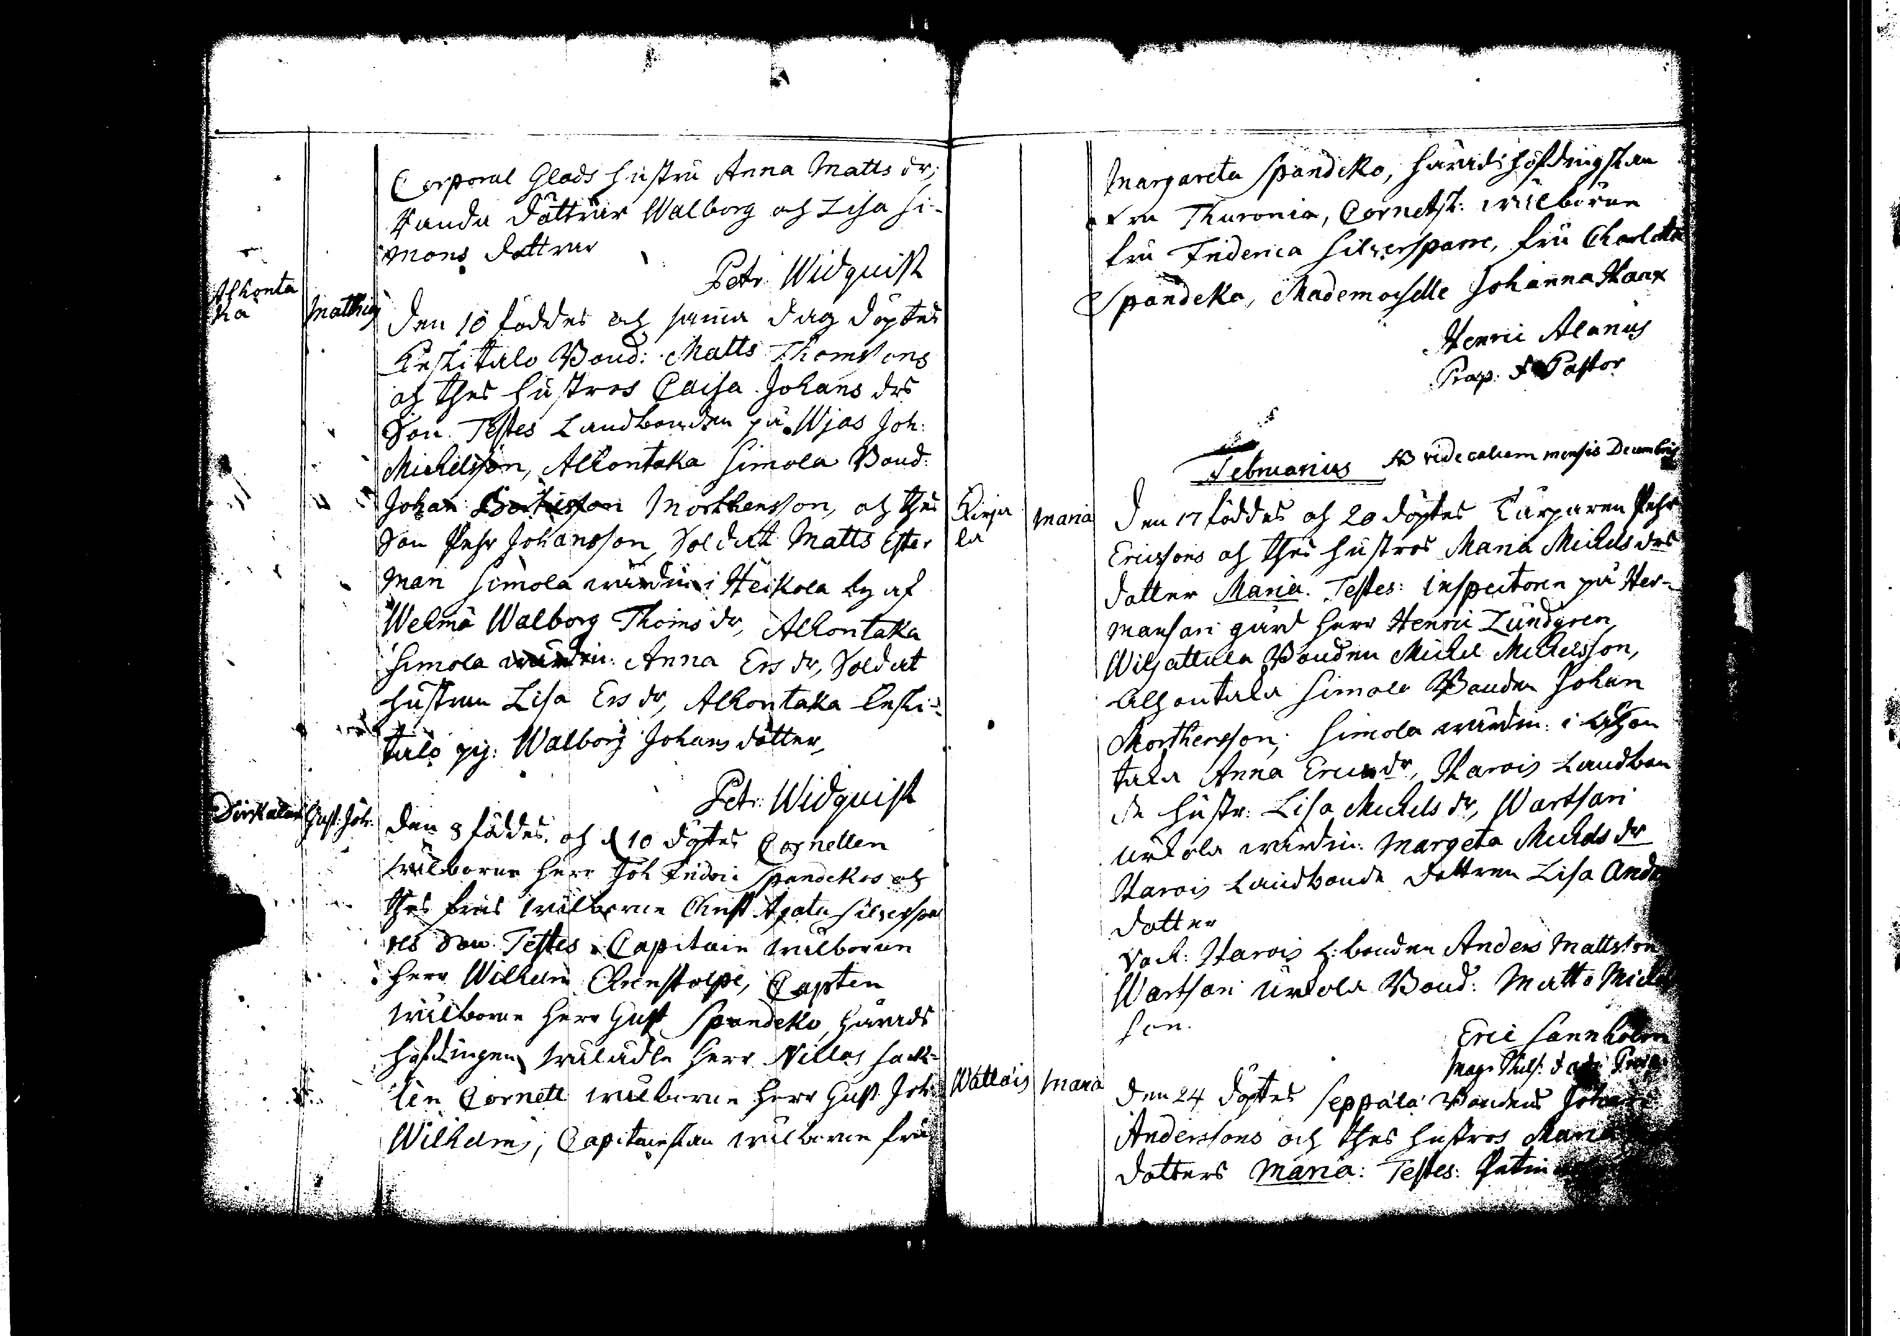 Corporal Glads hustru Anna Matts dr;
Walborg och Lisa Si-
mons dottrar
Petr. Widquist
Alkonta
ka
Matthias
Den 10 föddes och samma dag döptes
Keskitalo Bond: Matts Thomssons
och thes hustros Caisa Johans drs
Son. Testes Landbonden på Wjas Joh:
Michelsson, Alkontaka Simola Bond:
Johan Morthensson, och thes
Son Pehr Johansson, Soldat Matts Ester
man Simola wärdin i Heikola by af
Wehmå Walborg Thoms dr, Alkontaka
Simola wärdin: Anna Ers dr, Soldat
hustrun Lisa Ers dr, Alkontaka Keski-
talo pig: Walborg Johans dotter,
Petr. Widquist
Gust: Joh:
den 8 föddes och d 10 döptes Cornetten
wälborne herr Joh Fridric Spandekos och
thes frus wälborne Christ Agata Silfverspar
res Son Testes Capitain wälborne
herr Wilhelm, Capten
wälborne herr Gust Spandeko, härads
höfdingen wäladle herr Niclas Jack-
lin Cornett wälborne herr Gust Joh:
Wilhelms, Capitainskan wälborne fru
Margareta Spandeko, häradshöfdingskan
fru Thuronia, Cornetsk: wälborne
fru Friderica Silfversparre, fru Charlotta
Spandeko, Mademoiselle Johanna Haax
Henric Alanus
Præp: & Pastor
Februarius NB vide calcem mensis Decembris
Kirja
la
Maria
Den 17 föddes och 20 döptes Pehr
Ericssons och thes hustros Maria Michels drs
dotter Maria. Testes: inspectoren på Her-
mansari gård herr Henric Lundgren
Bonden Michel Michelsson,
Simola Bonden Johan
Morthensson, Simola wärdin: i Alkon
taka Anna Erics dr, Harois Landbon
de hustr: Lisa Michels dr, Wartsari
Urkola wärdin: Margeta Michels dr
Harois Landbonde dottren Lisa Anders
dotter
Vac: Harois L:bonden Anders Mattsson
Wartsari Urkola Bond: Matts Michels
son.
Eric Sannholm
Wattois
Maria
Den 24 döptes Seppälä Bondens Johan
Anderssons och thes hustros Maria
dotters Maria: Testes: